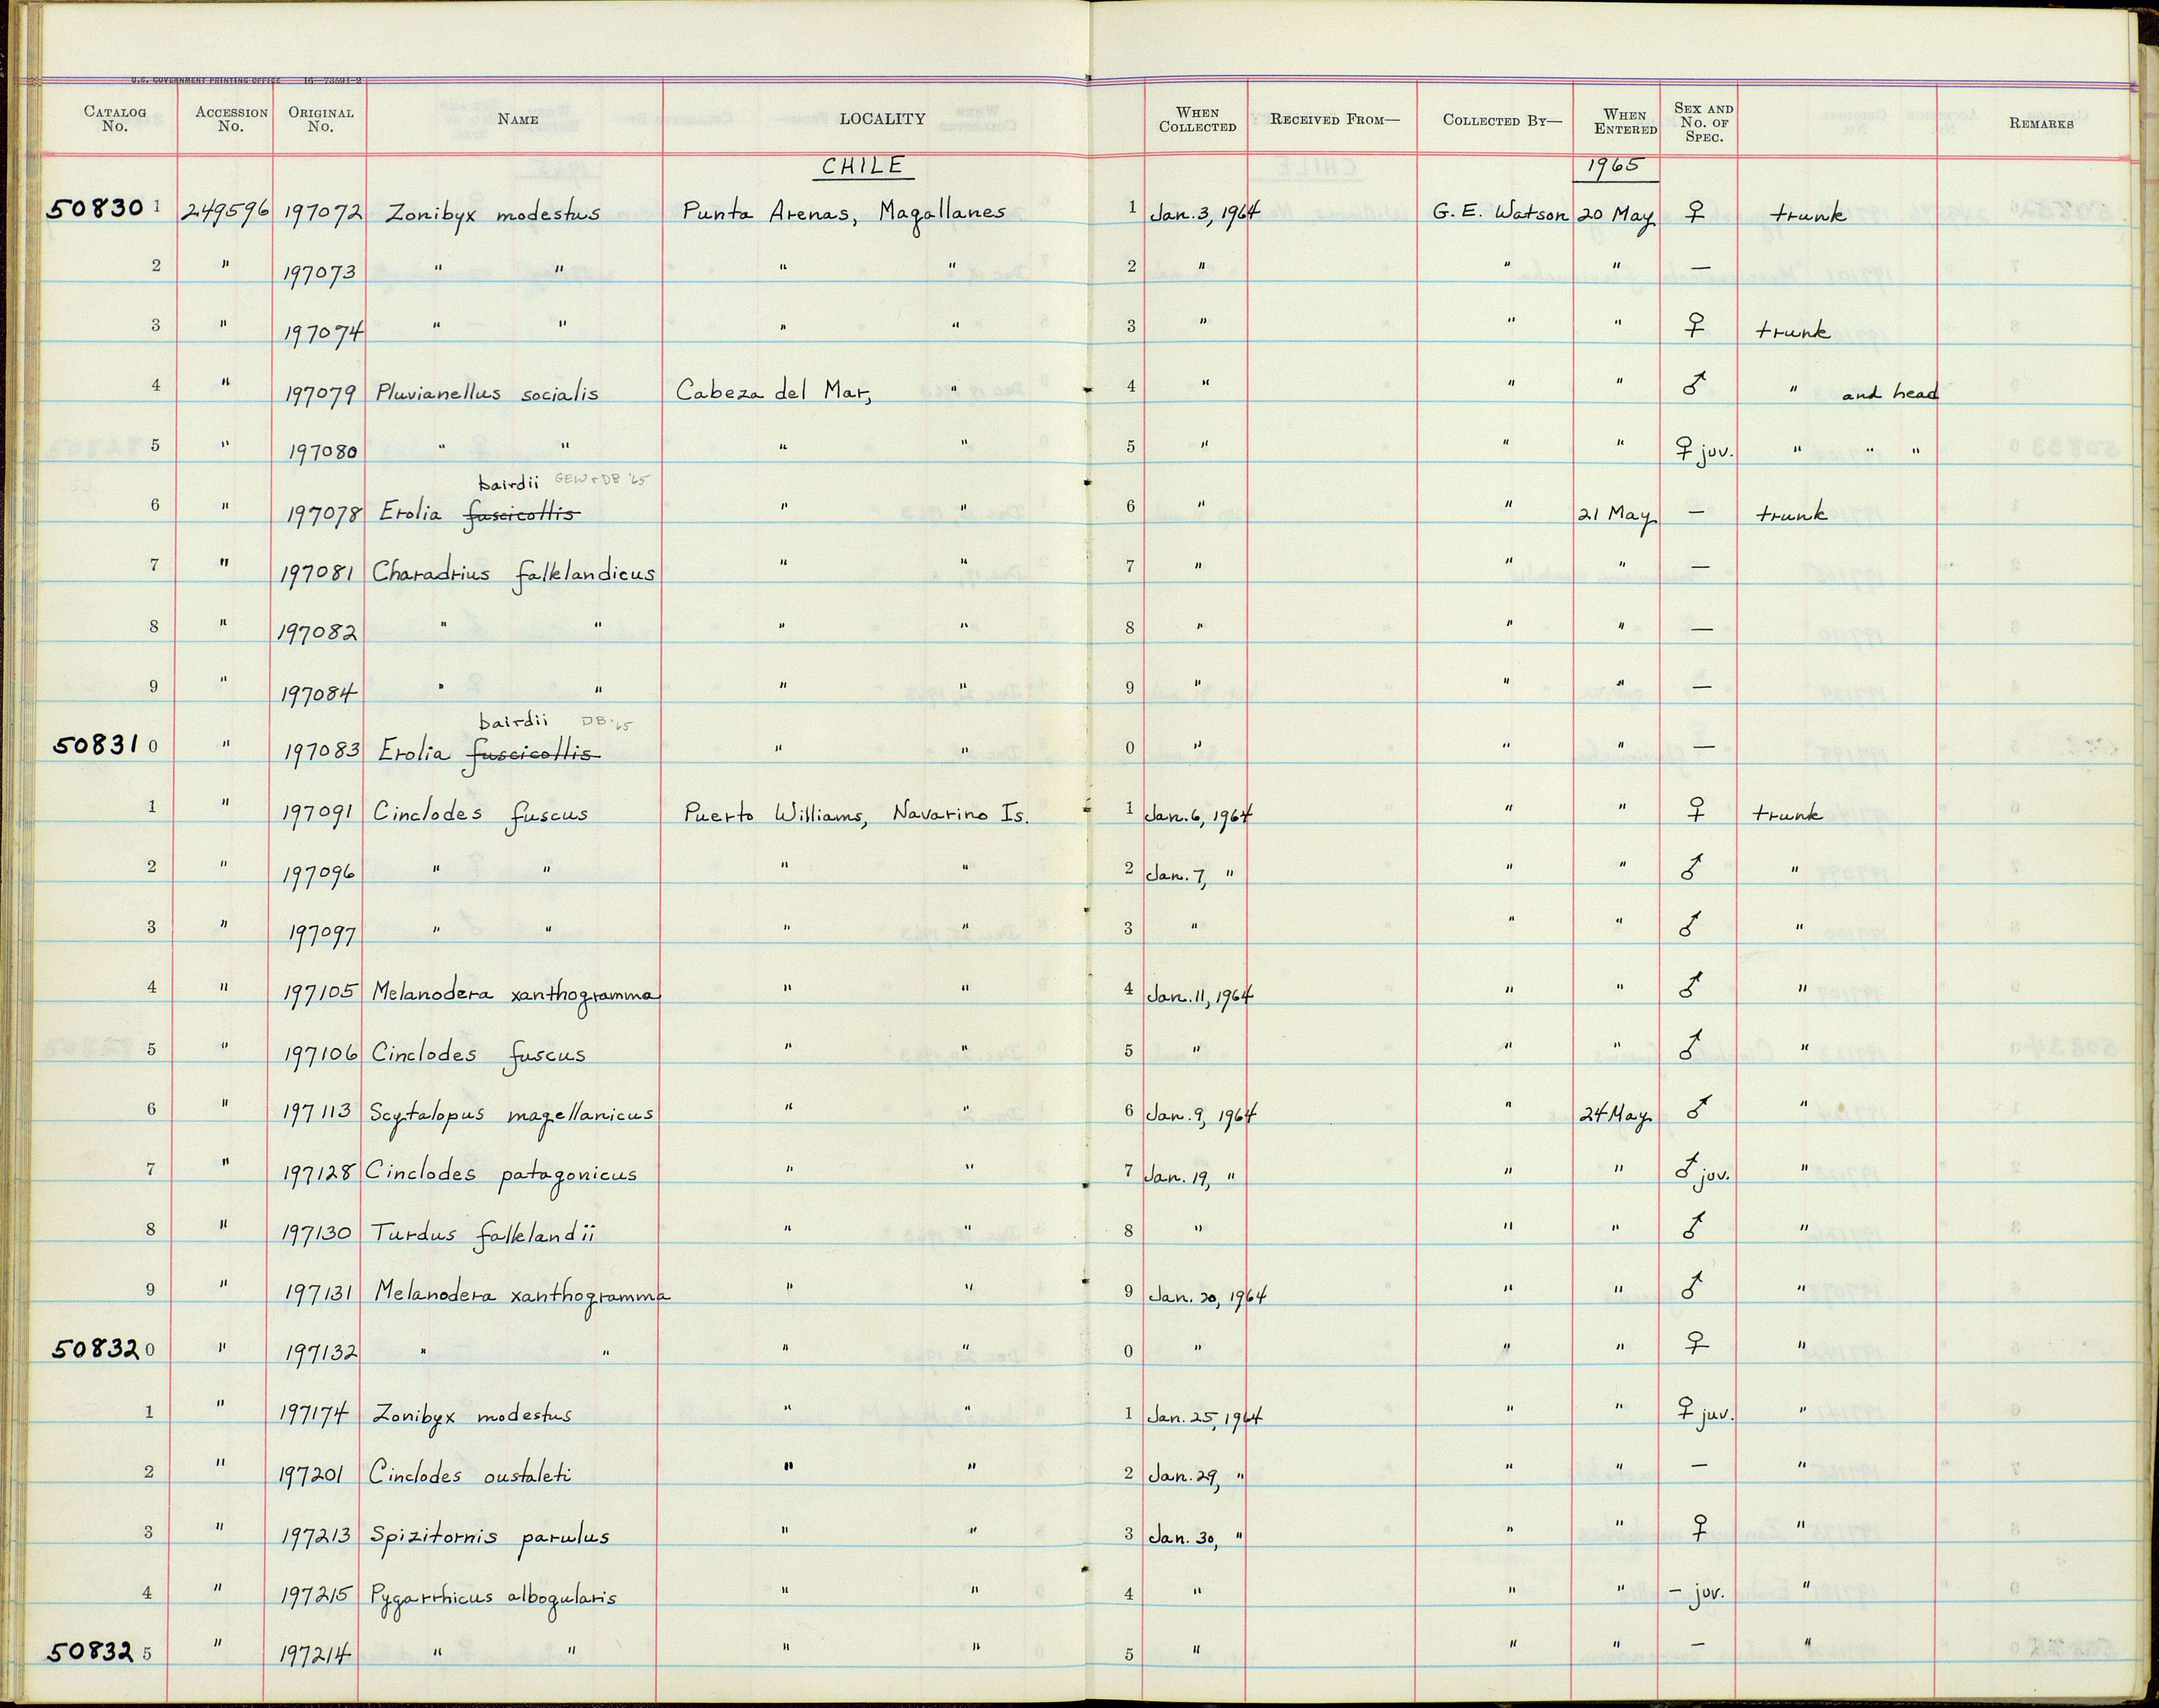 U.S. GOVERNMENT PRINTING OFFICE 16—73591-2
CATALOG No. ACCESSION No. ORIGINAL No. NAME LOCALITY WHEN COLLECTED RECEIVED FROM— COLLECTED BY— WHEN ENTERED SEX AND No. OF SPEC. REMARKS
CHILE 1965
50830 1 249596 197072 Zonibyx modestus Punta Arenas, Magallanes 1 Jan. 3, 1964 G. E. Watson 20 May ♀ trunk
2 " 197073 " " " " 2 " " " —
3 " 197074 " " " " 3 " " " ♀ trunk
4 " 197079 Pluvianellus socialis Cabeza del Mar, " 4 " " " ♂ " and head
5 " 197080 " " " " 5 " " " ♀ juv. " " "
bairdii GEW + DB '65
6 " 197078 Erolia fuscicollis " " 6 " " 21 May — trunk
7 " 197081 Charadrius falklandicus " " 7 " " " —
8 " 197082 " " " " 8 " " " —
9 " 197084 " " " " 9 " " " —
bairdii DB '65
50831 0 " 197083 Erolia fuscicollis " " 0 " " " —
1 " 197091 Cinclodes fuscus Puerto Williams, Navarino Is. 1 Jan. 6, 1964 " " ♀ trunk
2 " 197096 " " " " 2 Jan. 7, " " " ♂ "
3 " 197097 " " " " 3 " " " ♂ "
4 " 197105 Melanodera xanthogramma " " 4 Jan. 11, 1964 " " ♂ "
5 " 197106 Cinclodes fuscus " " 5 " " " ♂ "
6 " 197113 Scytalopus magellanicus " " 6 Jan. 9, 1964 " 24 May ♂ "
7 " 197128 Cinclodes patagonicus " " 7 Jan. 19, " " " ♂ juv. "
8 " 197130 Turdus falklandii " " 8 " " " ♂ "
9 " 197131 Melanodera xanthogramma " " 9 Jan. 20, 1964 " " ♂ "
50832 0 " 197132 " " " " 0 " " " ♀ "
1 " 197174 Zonibyx modestus " " 1 Jan. 25, 1964 " " ♀ juv. "
2 " 197201 Cinclodes oustaleti " " 2 Jan. 29, " " " — "
3 " 197213 Spizitornis parulus " " 3 Jan. 30, " " " ♀ "
4 " 197215 Pygarrhicus albogularis " " 4 " " " — juv. "
50832 5 " 197214 " " " " 5 " " " — "